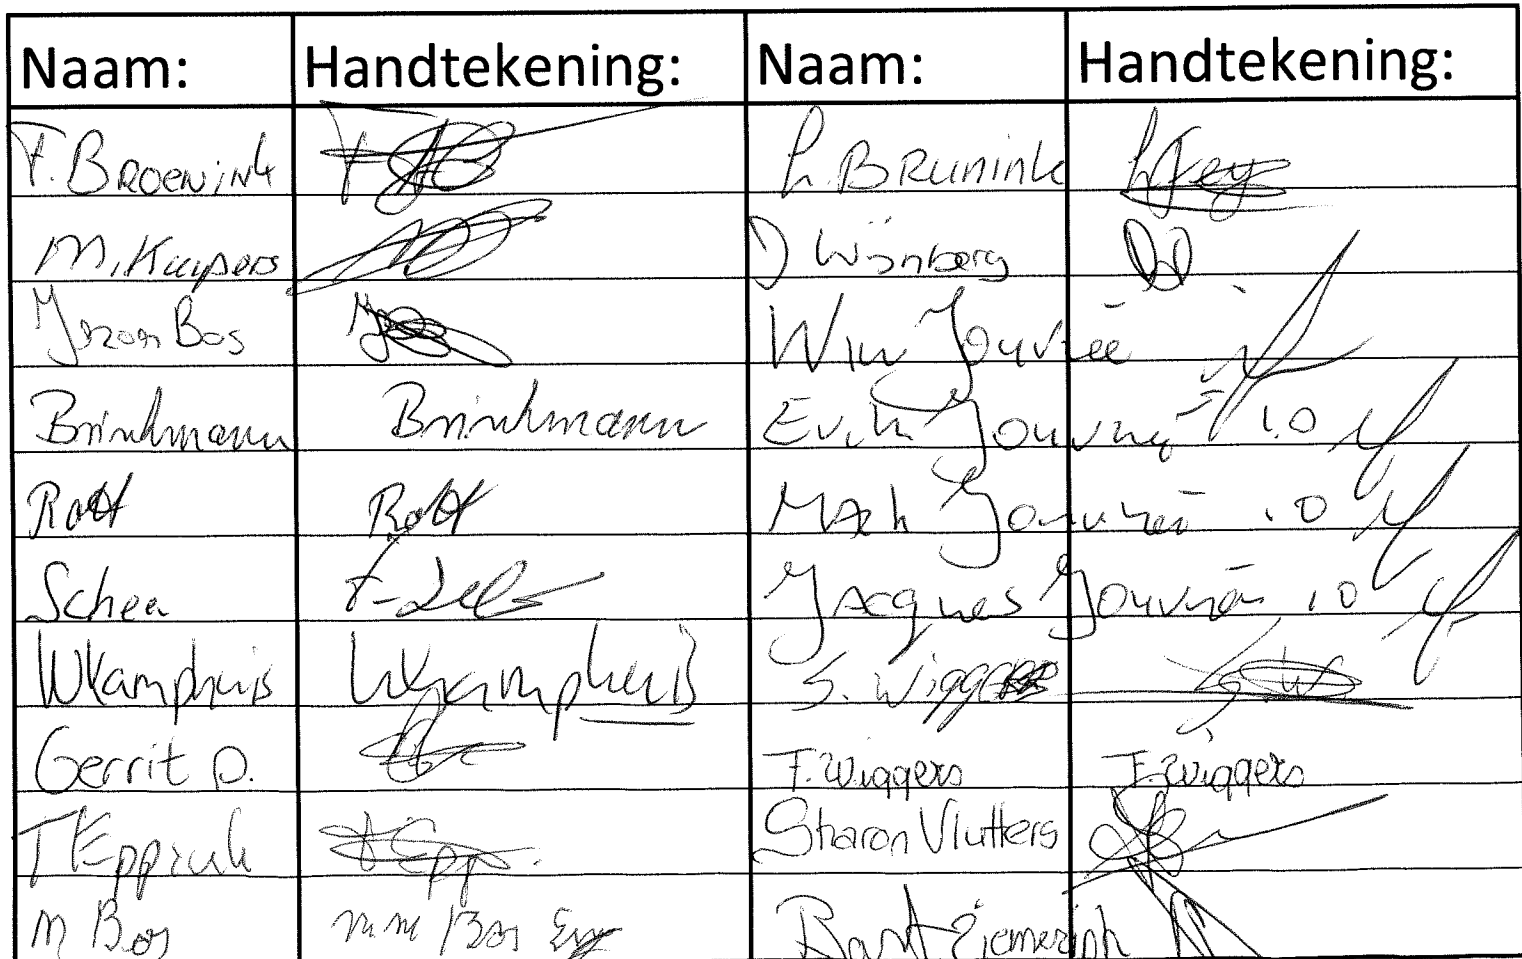 Naam: Handtekening: Naam: Handtekening:
F. BROENINK L. BRUNINK
M. Kuipers D Wijnberg
Jeroen Bos Wim Jouvrée
Brinkmann Brinkmann Jouvrée i.o
Rott Rott Jouvrée i.o
Scheer Jacques Jouvrée i.o
WKamphuis WKamphuis S. Wiggers
Gerrit D. F. Wiggers F. Wiggers
T Eppink Epp. Sharon Vlutters
M Bos Bos Bart